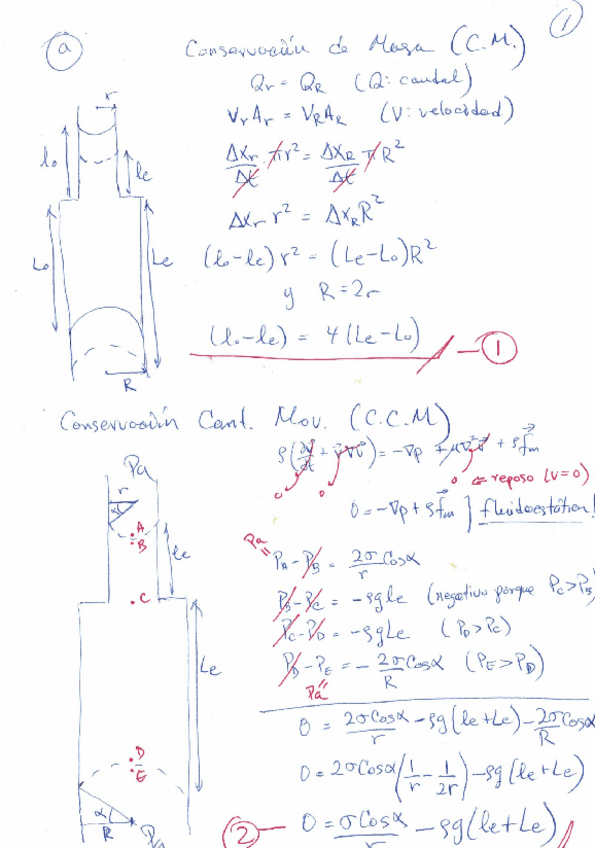 1
a
Conservación de Masa (C.M.)
Qr = QR (Q: caudal)
VrAr = VRAR (V: velocidad)
Δxr/Δt πr² = ΔxR/Δt πR²
Δxr r² = ΔxR R²
(lo-le) r² = (Le-Lo)R²
y R=2r
(lo-le) = 4(Le-Lo) — 1
r
lo
le
Lo
Le
R
Conservación Cant. Mov. (C.C.M)
ρ(∂v/∂t + v∇v) = -∇p + μ∇²v + ρfm
0 0 0 ← reposo (v=0)
0 = -∇p + ρfm } fluidoestática!
Pa
PA - PB = 2σ/r Cosα
PB - PC = -ρgle (negativo porque PC>PB
PC - PD = -ρgLe (PD>PC)
PD - PE = - 2σCosα/R (PE>PD)
Pa
0 = 2σCosα/r - ρg(le+Le) - 2σCosα/R
0 = 2σCosα(1/r - 1/2r) - ρg(le+Le)
2 — 0 = σCosα/r - ρg(le+Le)
Pa
r
α
A
B
le
C
Le
D
E
α
R
Pa